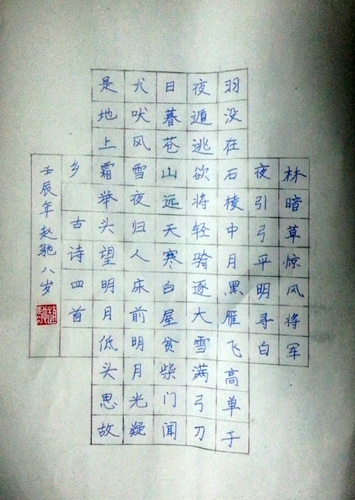 林暗草惊风将军
夜引弓平明寻白
羽没在石棱中月黑雁飞高单于
夜遁逃欲将轻骑逐大雪满弓刀
日暮苍山远天寒白屋贫柴门闻
犬吠风雪夜归人床前明月光疑
是地上霜举头望明月低头思故
乡 古诗四首
壬辰年赵驰八岁